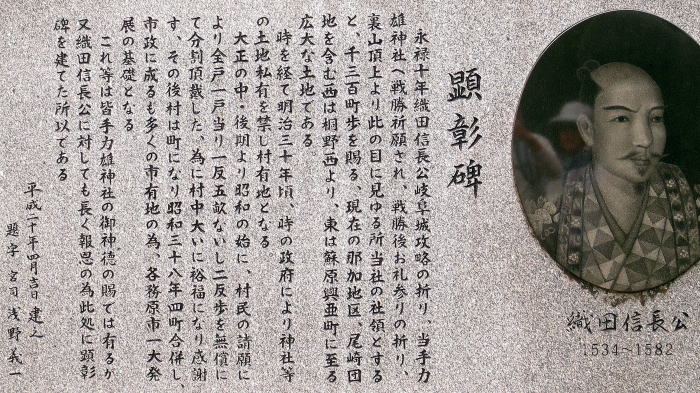 顕彰碑
永禄十年織田信長公岐阜城攻略の折り、当手力
雄神社へ戦勝祈願され、戦勝後お礼参りの折り、
裏山頂上より此の目に見ゆる所当社の社領とする
と、千三百町歩を賜る、現在の那加地区、尾崎団
地を含む一西は桐野西より、東は蘇原興亜町に至る
広大な土地である。
時を経て明治三十年頃、時の政府により神社等
の土地私有を禁じ村有地となる。
大正の中・後期より昭和の始に、村民の請願に
より全戸一戸当り一反五畝ないし二反歩を無償に
て分割頂戴した、為に村中大いに裕福になり感謝
す、その後村は町になり昭和三十八年四町合併し、
市政に成るも多くの市有地の為、各務原市一大発
展の基礎となる
これ等は皆手力雄神社の御神徳の賜では有るが
又織田信長公に対しても長く報恩の為此処に顕彰
碑を建てた所以である
平成二十年四月吉日 建之
題字 宮司 浅野義一
織田信長公
1534~1582